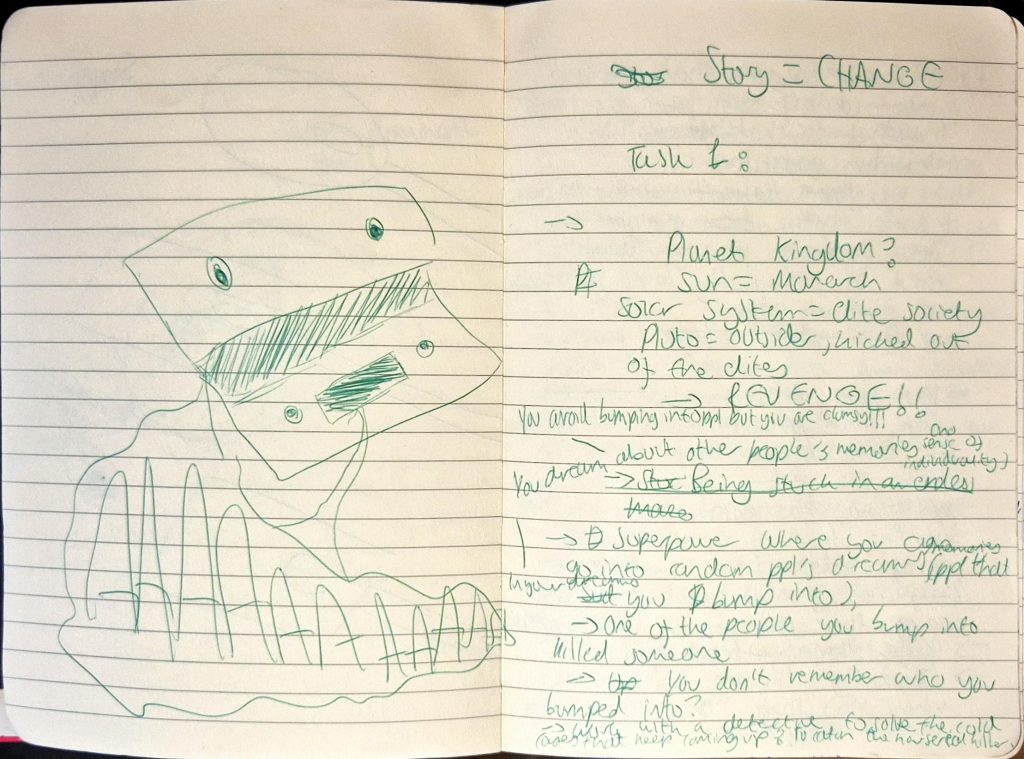 AAAAAAAAA
Story = CHANGE
Task 1:
→
Planet Kingdom?
sun = Monarch
solar system = elite society
Pluto = outsider, kicked out
of the elites
→ REVENGE!!
You avoid bumping into ppl but you are clumsy!!!
You dream about other people's memories (no sense of individuality)
→ Being stuck in an endless
maze
→ Superpower where you can
go into random ppl's dreams memories (ppl that
in your dreams
you bump into),
→ One of the people you bump into
killed someone
→ You don't remember who you
bumped into?
→ work with a detective to solve the cold
cases that keep coming up & to catch the killer